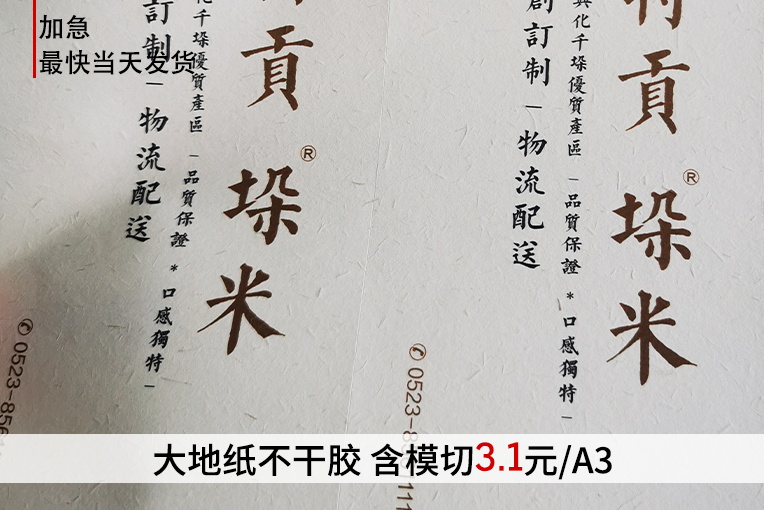 加急
最快当天发货
貢
垛米®
訂制 | 物流配送
化千垛優質產區 | 品質保證 * 口感獨特 |
0523-856
貢
垛米®
創訂制 | 物流配送
興化千垛優質產區 | 品質保證 * 口感獨特 |
0523-8
111
大地纸不干胶 含模切3.1元/A3